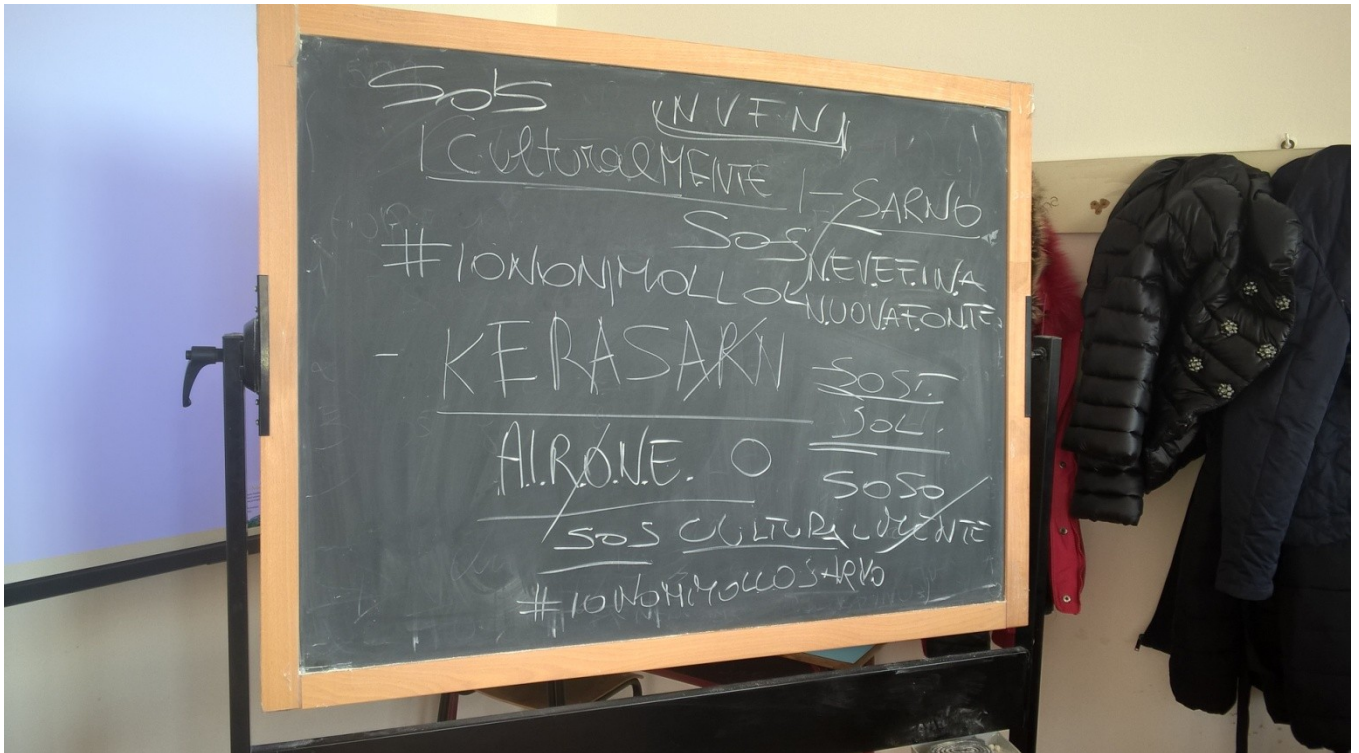 SOS
"N V F N"
CulturalMENTE
SARNO
SOS
#IONONIMOLLO
N.E.V.E.F.I.N.A
N.U.O.V.A.F.O.N.T.E.
- KERASARN
A.I.R.O.N.E. O
SOST.
SOL.
SOSO
SOS CULTURALMENTE
#IONONIMOLLOSARNO